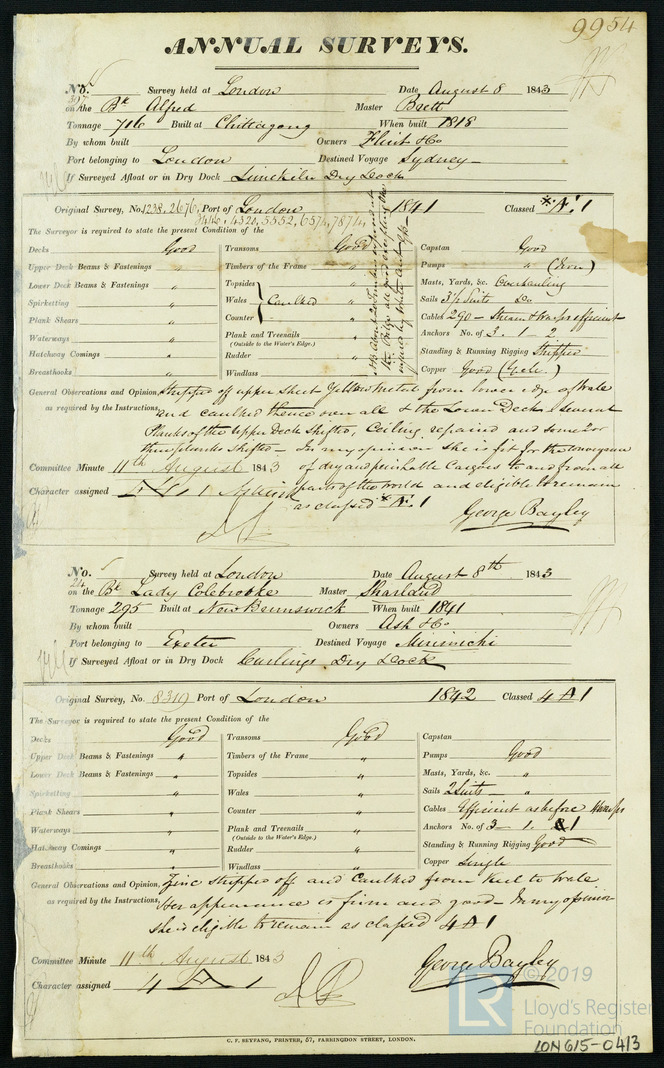 9954
ANNUAL SURVEYS.
No. Survey held at London Date August 8 1843
on the Bk Alfred Master Brett
Tonnage 716 Built at Chittagong When built 1818
By whom built Owners Flint & Co
Port belonging to London Destined Voyage Sydney
If Surveyed Afloat or in Dry Dock Limekiln Dry Dock
Original Survey, No. 1238, 2676, Port of London 1841 Classed *Æ 1
3446, 4320, 5552, 6574, 7874,
The Surveyor is required to state the present Condition of the
Decks Good Transoms Good Capstan Good
Upper Deck Beams & Fastenings " Timbers of the Frame " Pumps " (Iron)
Lower Deck Beams & Fastenings " Topsides Masts, Yards, &c.
Spirketting " Wales Caulked " Sails 3½ Suits Do
Plank Shears " Counter " Cables 290 - efficient
Waterways " Plank and Treenails " Anchors No. of 3. 1. 2
(Outside to the Water's Edge.)
Hatchway Comings " Rudder " Standing & Running Rigging Stripped
Breasthooks " Windlass Copper Good
General Observations and Opinion, Stripped off upper sheet Yellow Metal from lower edge of Wale
as required by the Instructions, and caulked thence over all & the Lower Deck, several
Planks of the Upper Deck Shifted, Ceiling repaired and some
planks Shifted - In my opinion she is fit for the conveyance
Committee Minute 11th August 1843 of dry and perishable Cargoes to and from all
Character assigned Æ 1 parts of the world and eligible to remain
as classed *Æ 1
George Bayley
No. Survey held at London Date August 8th 1843
on the Bk Lady Colebrooke Master Sharland
Tonnage 295 Built at New Brunswick When built 1841
By whom built Owners Ash & Co
Port belonging to Exeter Destined Voyage Mirimichi
If Surveyed Afloat or in Dry Dock Curlings Dry Dock
Original Survey, No. 8319 Port of London 1842 Classed 4 A 1
The Surveyor is required to state the present Condition of the
Decks Good Transoms Good Capstan
Upper Deck Beams & Fastenings " Timbers of the Frame " Pumps Good
Lower Deck Beams & Fastenings " Topsides " Masts, Yards, &c. "
Spirketting " Wales " Sails 2 Suits
Plank Shears " Counter " Cables Efficient as before
Waterways " Plank and Treenails " Anchors No. of 3. 1. & 1
(Outside to the Water's Edge.)
Hatchway Comings " Rudder " Standing & Running Rigging Good
Breasthooks " Windlass " Copper Single
General Observations and Opinion, Zinc stripped off and Caulked from Keel to Wale
as required by the Instructions, Her appearance is firm and good - In my opinion
She is eligible to remain as classed 4 A 1
Committee Minute 11th August 1843
Character assigned 4 A 1
George Bayley
© 2019
LR Lloyd's Register
Foundation
C. F. SEYFANG, PRINTER, 57, FARRINGDON STREET, LONDON.
LON615-0413